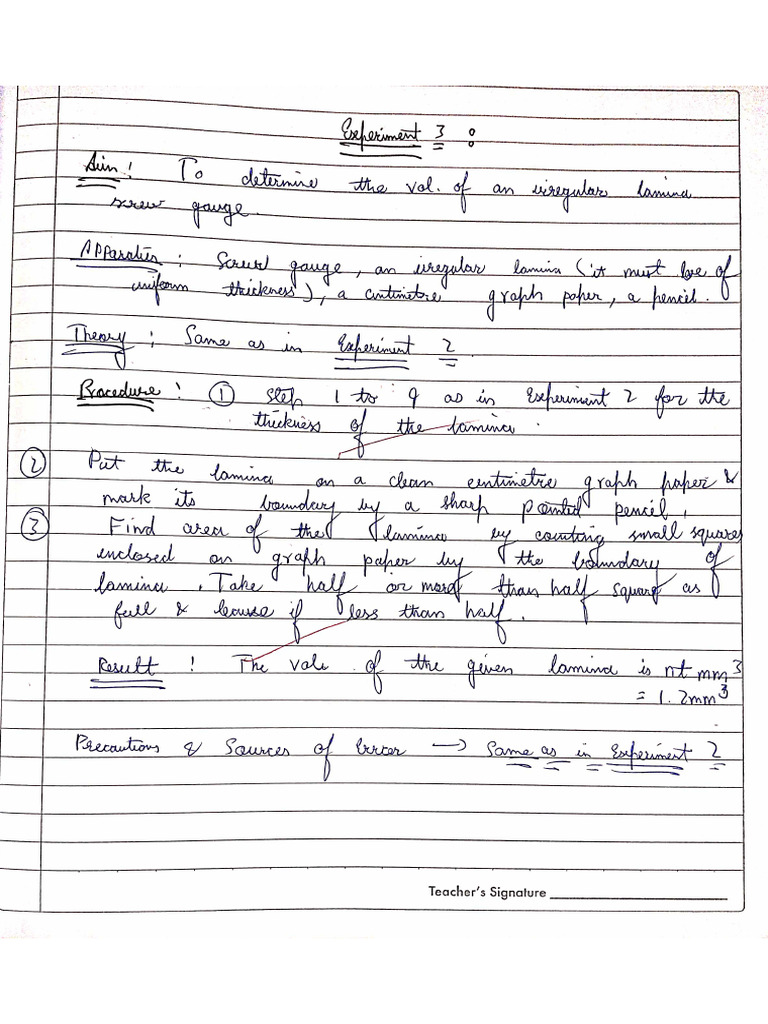 Experiment 3 :
Aim : To determine the vol. of an irregular lamina
screw gauge.
Apparatus : Screw gauge, an irregular lamina (it must be of
uniform thickness), a centimetre graph paper, a pencil.
Theory : Same as in Experiment 2
Procedure : ① Step 1 to 9 as in Experiment 2 for the
thickness of the lamina.
② Put the lamina on a clean centimetre graph paper &
mark its boundary by a sharp pointed pencil.
③ Find area of the lamina by counting small squares
enclosed on graph paper by the boundary of
lamina. Take half or more than half square as
full & if less than half.
Result : The of the given lamina is nt mm³
= 1.2mm³
Precautions & Sources of Error → Same as in Experiment 2
Teacher's Signature